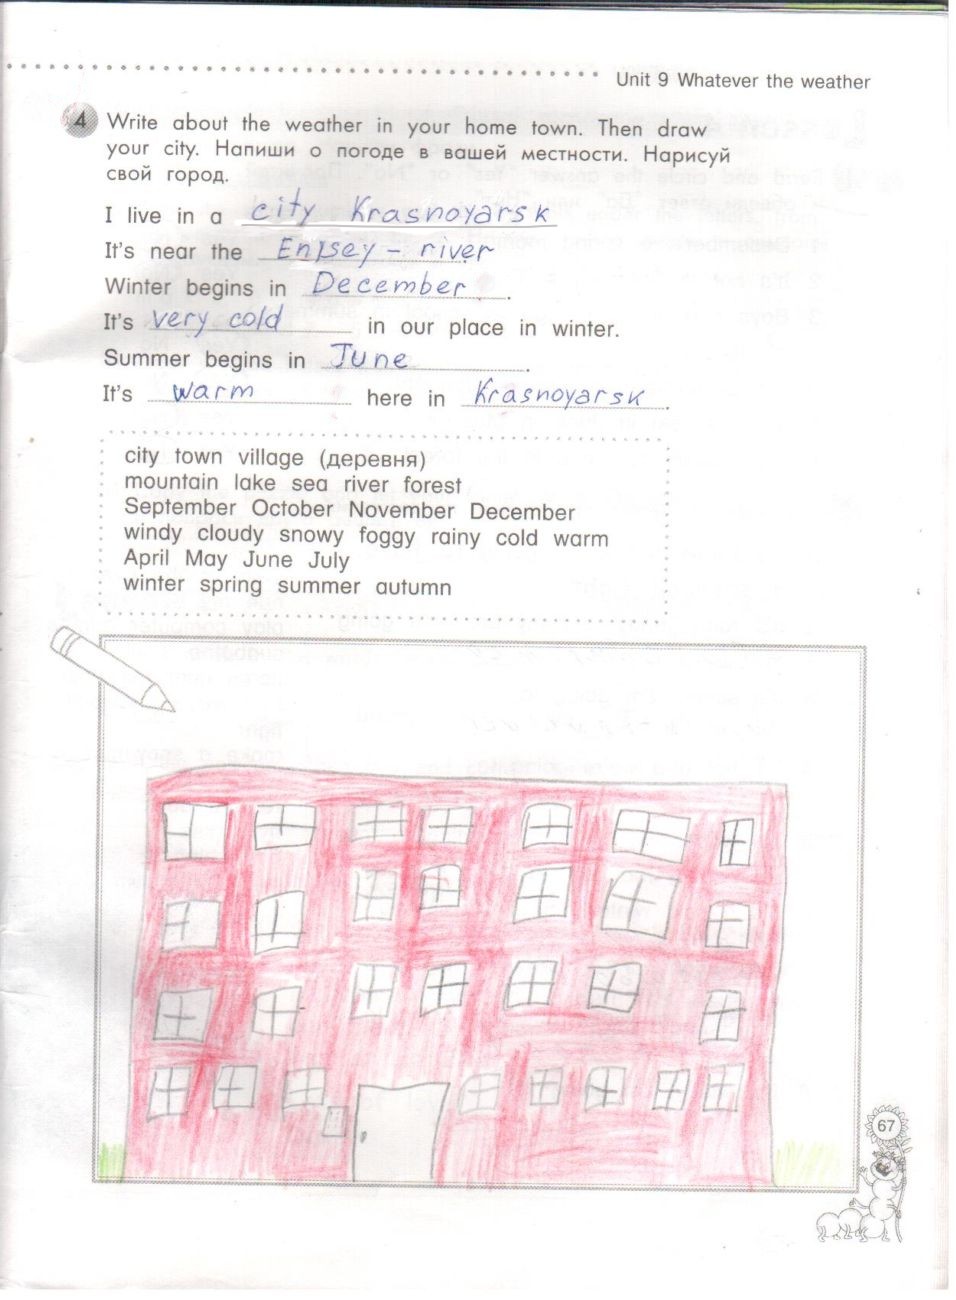 Unit 9 Whatever the weather
4 Write about the weather in your home town. Then draw
your city. Напиши о погоде в вашей местности. Нарисуй
свой город.
I live in a city Krasnoyarsk
It's near the Enisey - river.
Winter begins in December.
It's very cold in our place in winter.
Summer begins in June.
It's warm here in Krasnoyarsk.
city town village (деревня)
mountain lake sea river forest
September October November December
windy cloudy snowy foggy rainy cold warm
April May June July
winter spring summer autumn
67